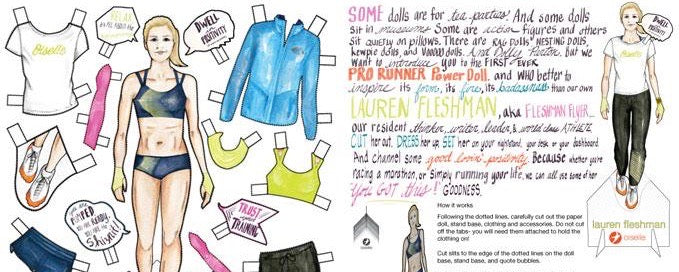 RELAX
DWELL
IN
POSITIVITY
Oiselle
you are
PUMPED
TRUST
YOUR
TRAINING
SOME dolls are for tea parties. And some dolls
sit in museums. Some are action figures and others
sit QUIETLY on pillows. There are RAG DOLLS, NESTING DOLLS,
kewpie dolls, and VOODOO DOLLS. And Dolly Parton. but we
want to introduce you to the FIRST EVER
PRO RUNNER Power Doll. and WHO better to
inspire its form, its fire, its badassness than our own
LAUREN FLESHMAN, aka FLESHMAN FLYER...
our resident thinker, writer, leader, & world class ATHLETE
CUT her out. DRESS her up. SET her on your nightstand, your desk, or your dashboard.
And channel some good lovin' positivity. Because whether you're
racing a marathon, or simply running your life, we can all use some of her
"you GOT this!" GOODNESS.
DWELL
IN
POSITIVITY
Oiselle
lauren fleshman
oiselle
How it works
Following the dotted lines, carefully cut out the paper
doll, stand base, clothing and accessories. Do not cut
off the tabs- you will need them attached to hold the
clothing on!
Cut slits to the edge of the dotted lines on the doll
base, stand base, and quote bubbles.